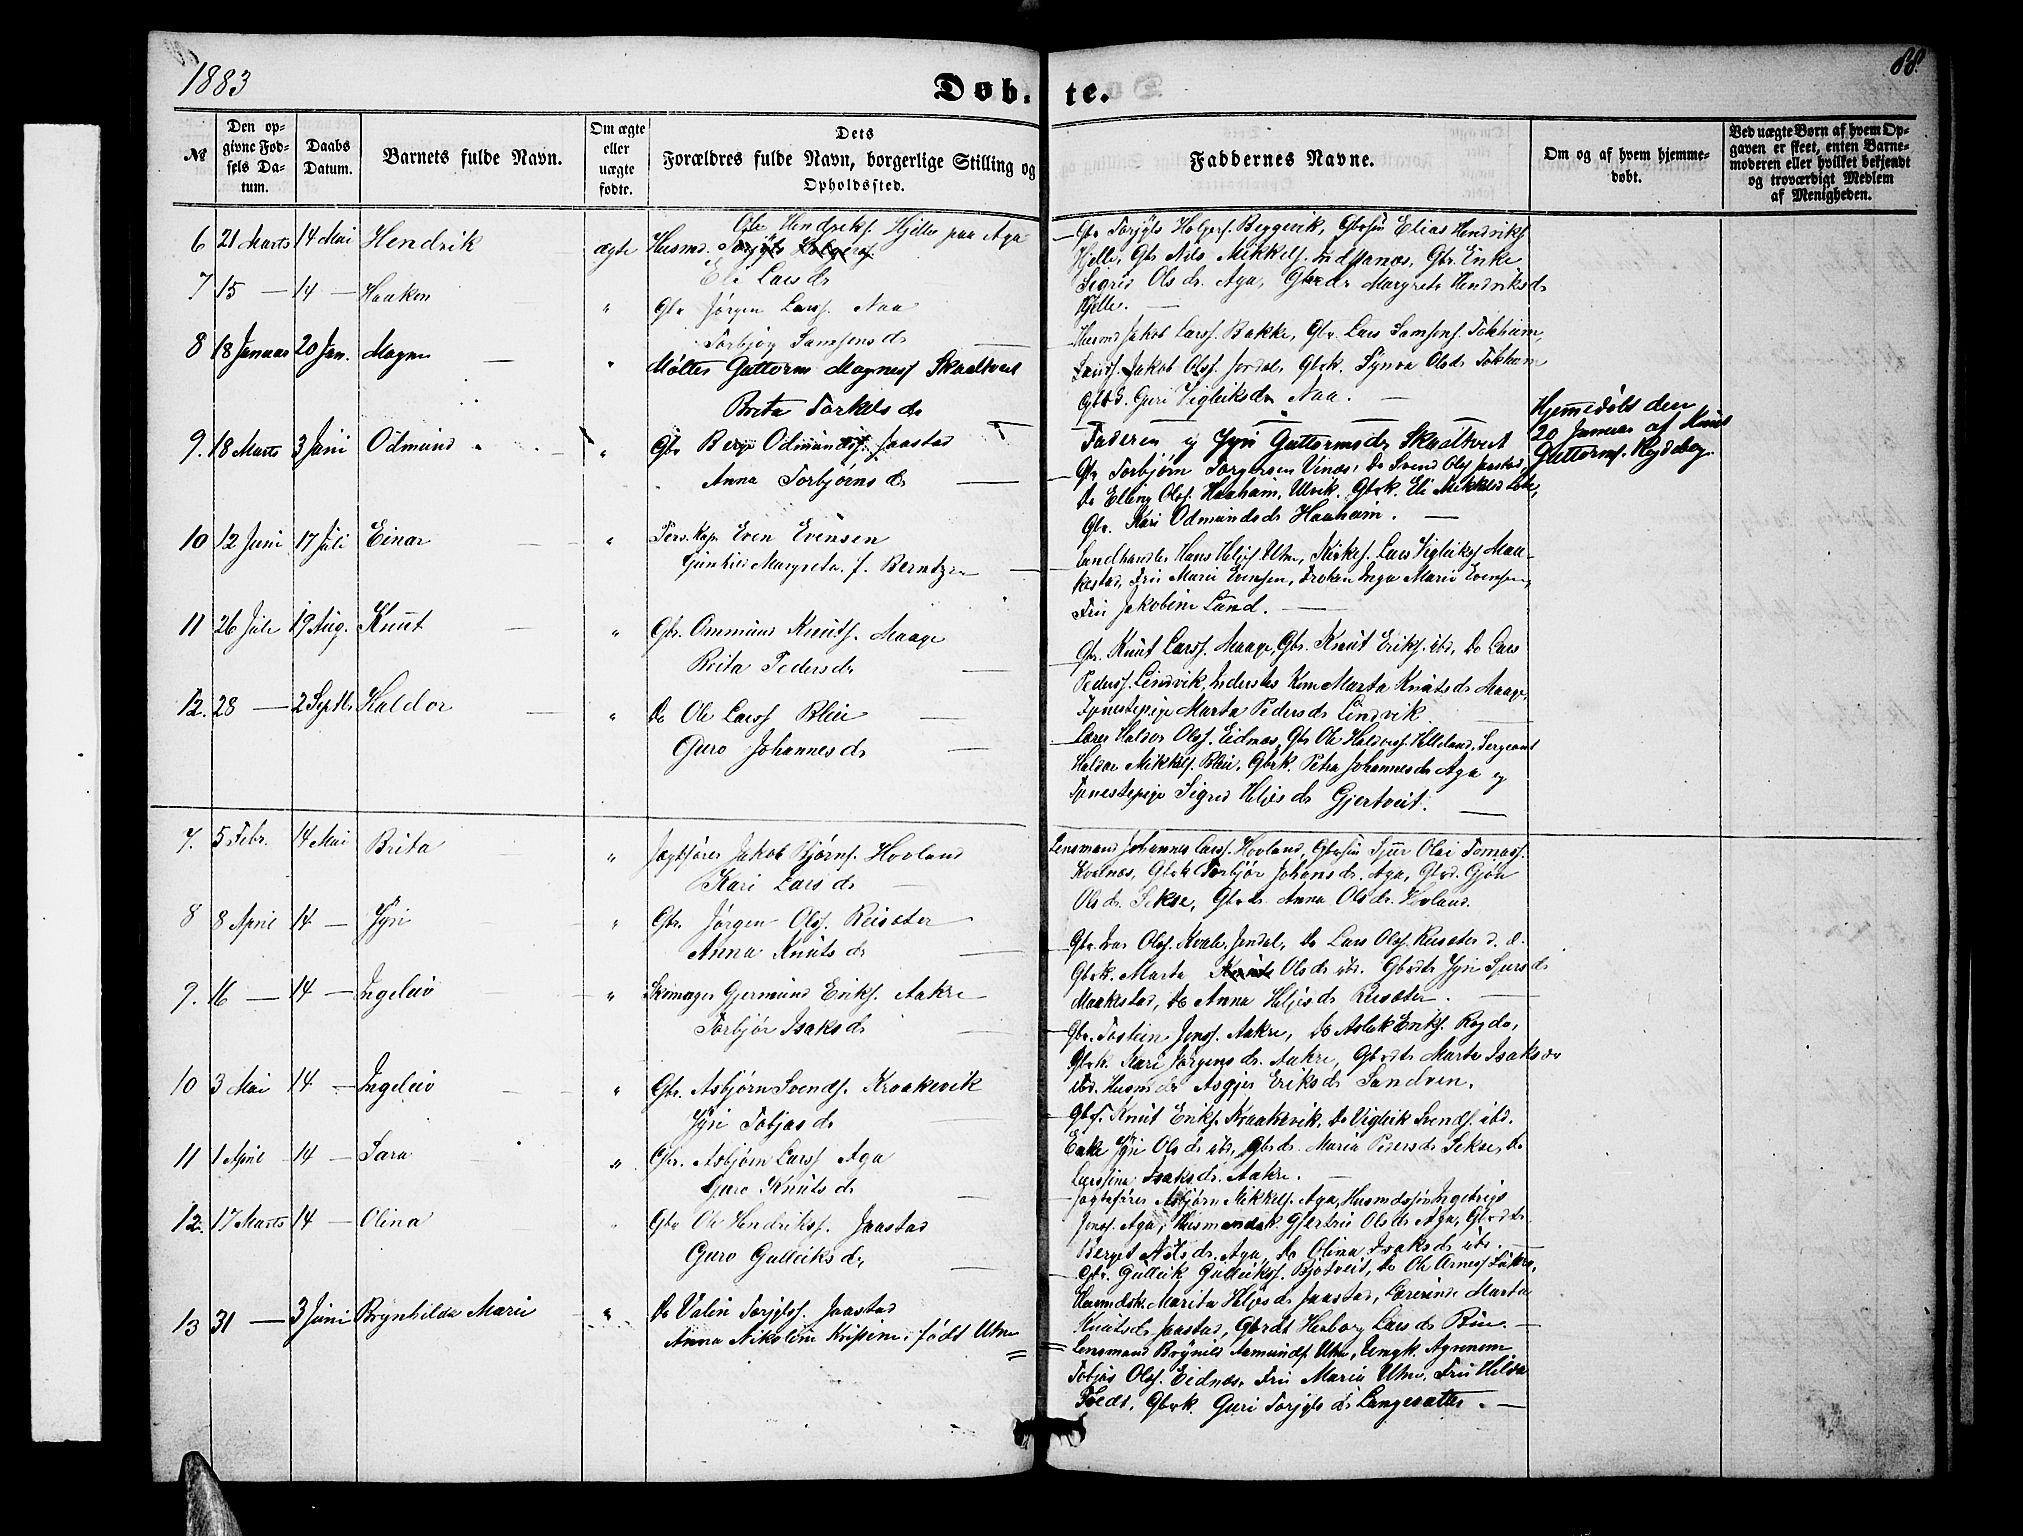 1883
Døb-
te.
88.
№
Den opgivne Fødsels Datum.
Daabs Datum.
Barnets fulde Navn.
Om ægte eller uægte fødte.
Dets Forældres fulde Navn, borgerlige Stilling og Opholdssted.
Faddernes Navne.
Om og af hvem hjemmedøbt.
Ved uægte Børn af hvem Opgaven er skeet, enten Barnemoderen eller hvilket bekjendt og troværdigt Medlem af Menigheden.
6 21 Marts 14 Mai Hendrik ægte Husmd. Ole Hendriks. Hjelle paa Aga
Eli Larsdr
Gbr Torjyls Holjers. Beggevik, Gbrsøn Elias Hendriks.
Hjelle, Gbr Nils Mikkels. Enke
Sigrid Olsdr. Aga, Gbrdr Margreta Hendriksdr
Hjelle.
7 15 — 14 — Haaken " Gbr Jørgen Larss. Aa
Torbjøg Samsonsdr
Husmd Jakob Larss. Bakke, Gbr. Lars Samsons. Tokheim,
Jakob Olss. Jordal, Gbrk. Synva Olsdr Tokheim
Gbrd. Guri Vigleiksdr Aaa.
8 18 Januar 20 Jan. Magne " Møller Guttorm Magness Skaaltveit
Brita Torkelsdr
Faderen og Jyri Guttormsdr Skaaltveit
Hjemmedøbt den
20 Januar af Knut
Guttorms.
9. 18 Marts 3 Juni Odmund " Gbr Berge Odmundss. Jaastad
Anna Torbjørnsdr
Gbr Torbjørn Torgersen Vines, Do Svend Olss Jaastad,
Do Elling Olss. Haaheim, Ulvik. Gbrk. Eli Mikkelsd Lote,
Gbr. Kari Odmundsdr Haaheim.
10 12 Juni 17 Juli Einar " Kap Even Evensen
Margreta f. Berntzen
Landhandler Hans Utne, Kirkes. Lars Vigleiks Maakestad,
Fru Marie Evensen, Frøken Inga Marie Evensen,
Fru Jakobine Lund.
11 26 Juli 19 Aug. Knut " Gbr. Ommund Knuts. Maage
Brita Pedersdr
Gbr. Knut Larss. Maage, Gbr. Knut Eriks. ibd, Do Lars
Pederss. Lindvik, Marta Knutsdr Maage,
Tjenestepige Marta Pedersdr Lindvik
12. 28 — 2 Septbr Haldor " Do Ole Larss Bleie
Guro Johannesdr
Lærer Haldor Olss. Eidnæs, Gbr Ole Haldorss. Helleland, Sergeant
Haldor Mikkels. Bleie, Gbrk. Petra Johannesdr Aga og
Tjenestepige Sigrid Heljesdr Gjertveit.
7. 5 Febr. 14 Mai Brita " Jagtfører Jakob Bjørns. Hovland
Kari Larsdr
Lensmand Johannes Larss. Hovland, Gbrsøn Sjur Olai Tomass.
Kvalnæs, Gbrk Torbjør Johansdr. Aga, Gbrd. Gjøa
Olsdr. Sekse, Gbrdr Anna Olsdr. Hovland.
8 8 April 14 — Jyri " Gbr. Jørgen Olss. Reisæter
Anna Knutsdr
Gbr. Ivar Olss. Kvale, Jondal, Do Lars Olss. Reisæter d. æ.
Gbrk. Marta Olsdr ibd. Gbrdtr Jyri Sjursdr
Maakestad, Do Anna Heljesdr Reisæter.
9. 16 — 14 — Ingeleiv " Skomager Gjermund Eriks. Aakre
Torbjør Isaksdr
Gbr. Tostein Jonss. Aakre, Do Aslak Eriks. Rogde,
Gbrk. Kari Jørgensdr. Aakre, Gbrdtr Marta Isaksdr
ibd. Husmdk Asgjer Eriksdr Sandven.
10 3 Mai 14 — Ingeleiv " Gbr. Asbjørn Svends. Kraakevik
Jyri Tobjasdr
Gbr. Knut Eriks. Kraakevik, Do Vigleik Svends. ibd.
Enke Jyri Olsdr ibd, Gbrdr. Maria Pedersdr Sekse, Do
Larssina Isaksdr. Aakre.
11 1 April 14 — Sara " Gbr. Asbjørn Larss Aga
Guro Knutsdr
Jagtefører Asbjørn Mikkels. Aga, Husmdssøn Ingebrigt
Jonss. Aga, Husmandsk. Gjertru Olsdr Aga, Gbrdtr.
Berget Aga, Do Olina Isaksdr ibd.
12. 17 Marts 14 — Olina " Gbr Ole Hendrikss. Jaastad
Guro Gulleiksdr
Gbr. Gulleik Gulleikss. Bjotveit, Do Ole Arness Lutro,
Husmdsk. Marita Heljesdr Jaastad, Lærerinde Marta
Knutsdr Jaastad, Gbrdt Herborg Larsdr Bu.
13 31 — 3 Juni Brynhilda Marie " Do Valen Torjylss. Jaastad
Anna Nikoline Kristine, født Utne
Lensmand Brynild Aamunds. Utne, Ungk. Agronom
Tobjas Olss. Eidnæs, Fru Maria Utne, Fru Hilda
Tvedt, Gbrk. Guri Torjylsdr Langesæter.